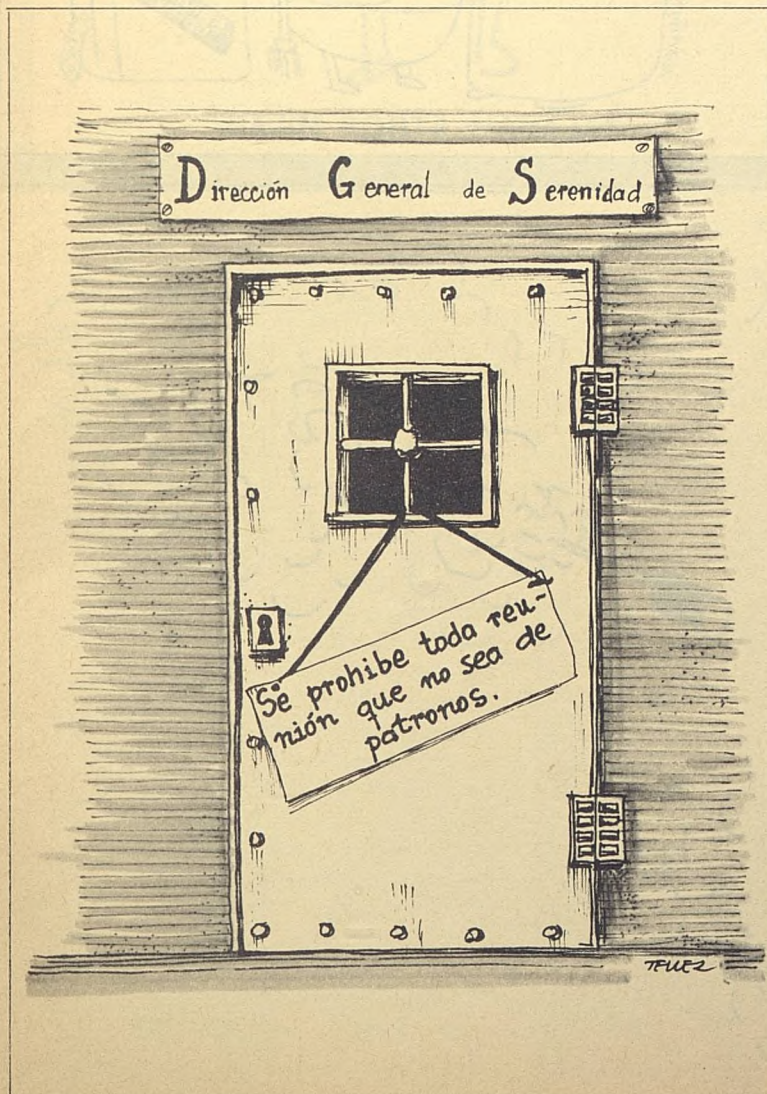 Dirección General de Serenidad
Se prohibe toda reu-
nión que no sea de
patronos.
TELLEZ